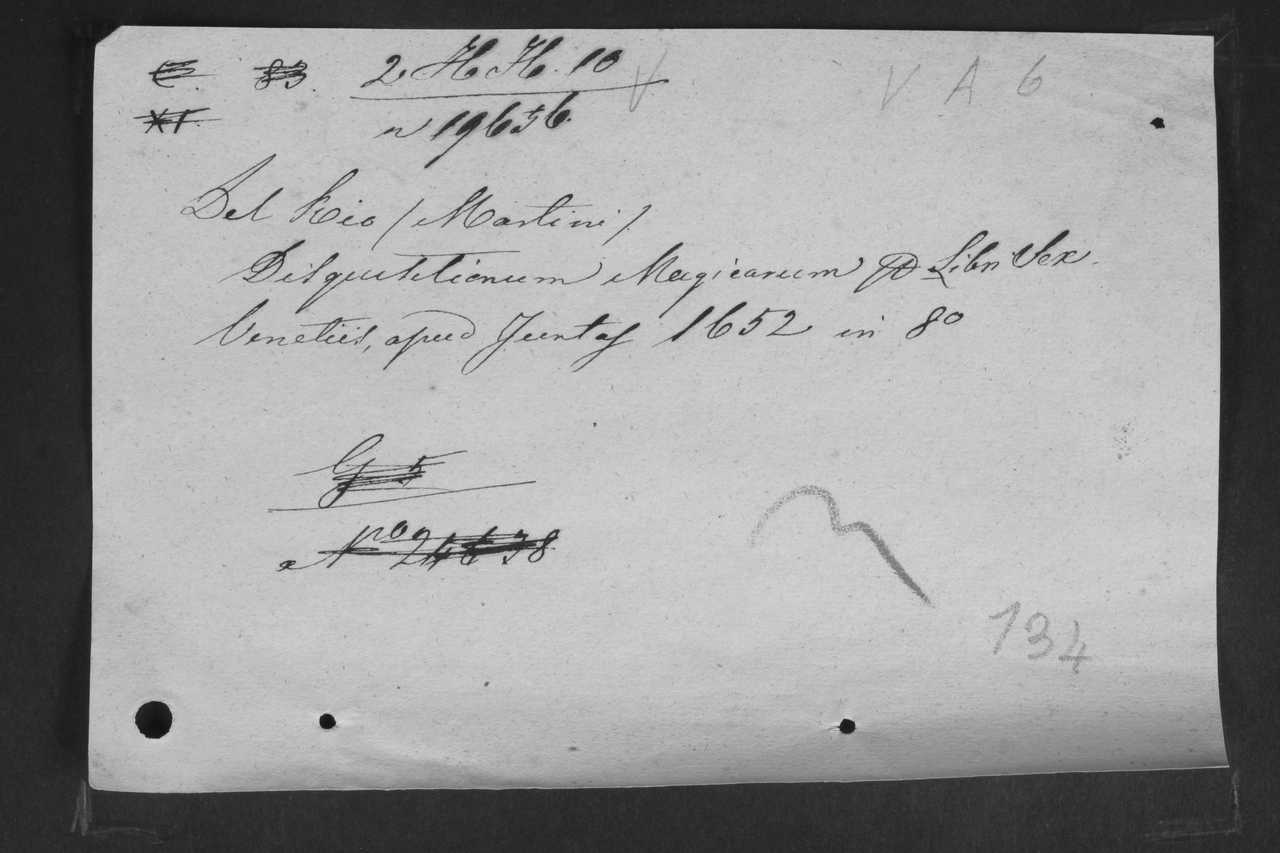 E. 83. 2 H H. 10 V V A 6
XI. n 19656.
Del Rio / Martini /
Disquisitionum Magicarum Libri Sex.
Venetiis, apud Juntas 1652 in 8º
G 5
Nº 24678
134